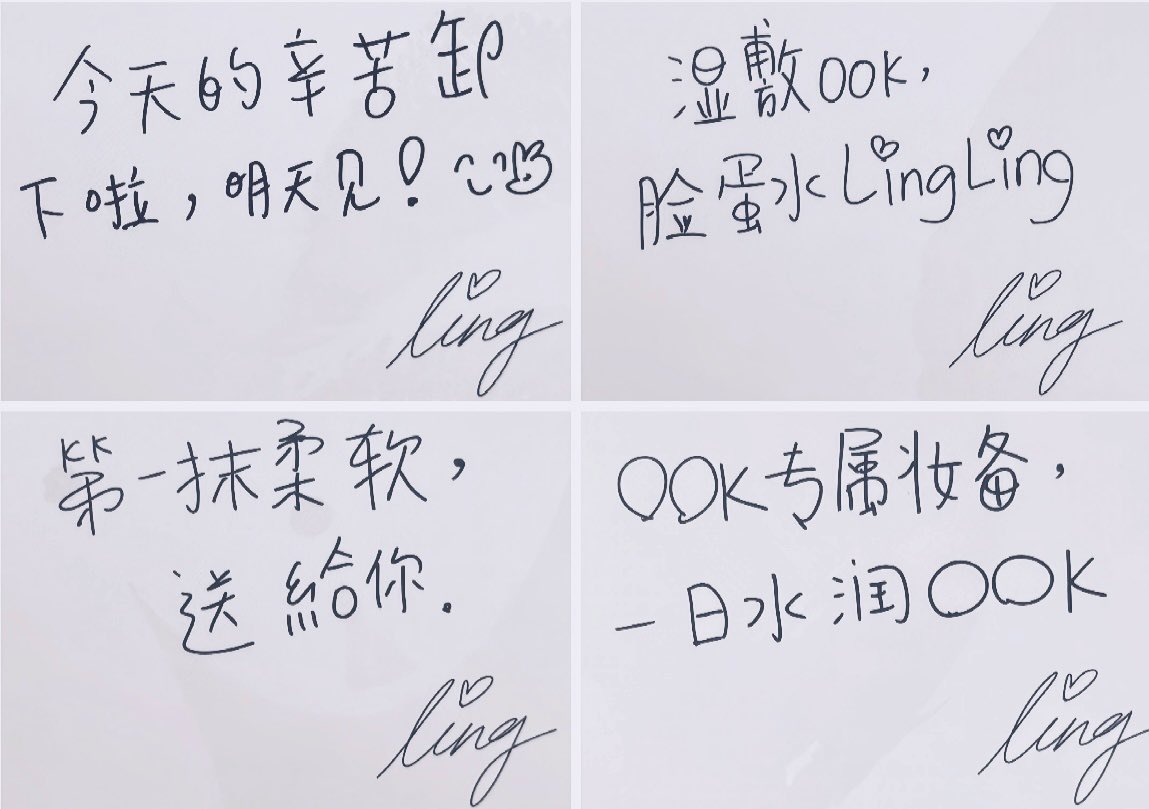 今天的辛苦卸
下啦，明天见！
ling
湿敷OOK，
脸蛋水LingLing
ling
第一抹柔软，
送給你.
ling
OOK专属妆备，
一日水润OOK
ling